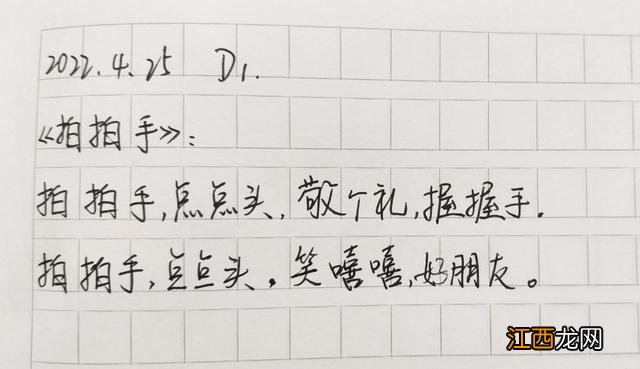 2022.4.25 D1.
《拍拍手》:
拍拍手,点点头,敬个礼,握握手.
拍拍手,点点头。笑嘻嘻,好朋友。
江西龙网